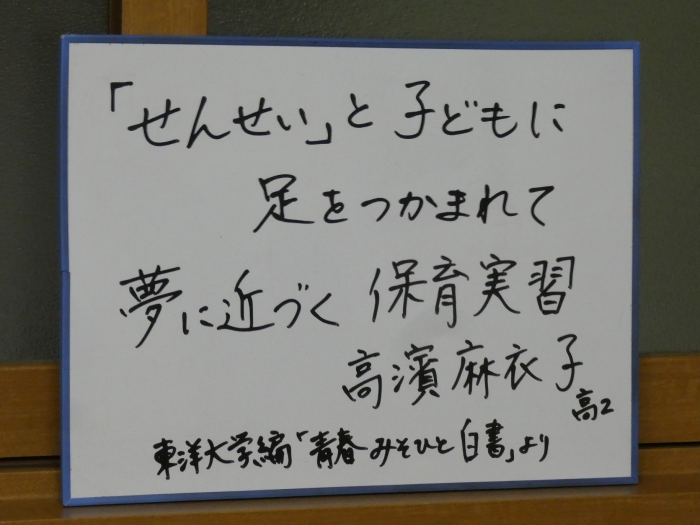 「せんせい」と子どもに
足をつかまれて
夢に近づく 保育実習
高濱麻衣子
高2
東洋大学編「青春みそひと白書」より